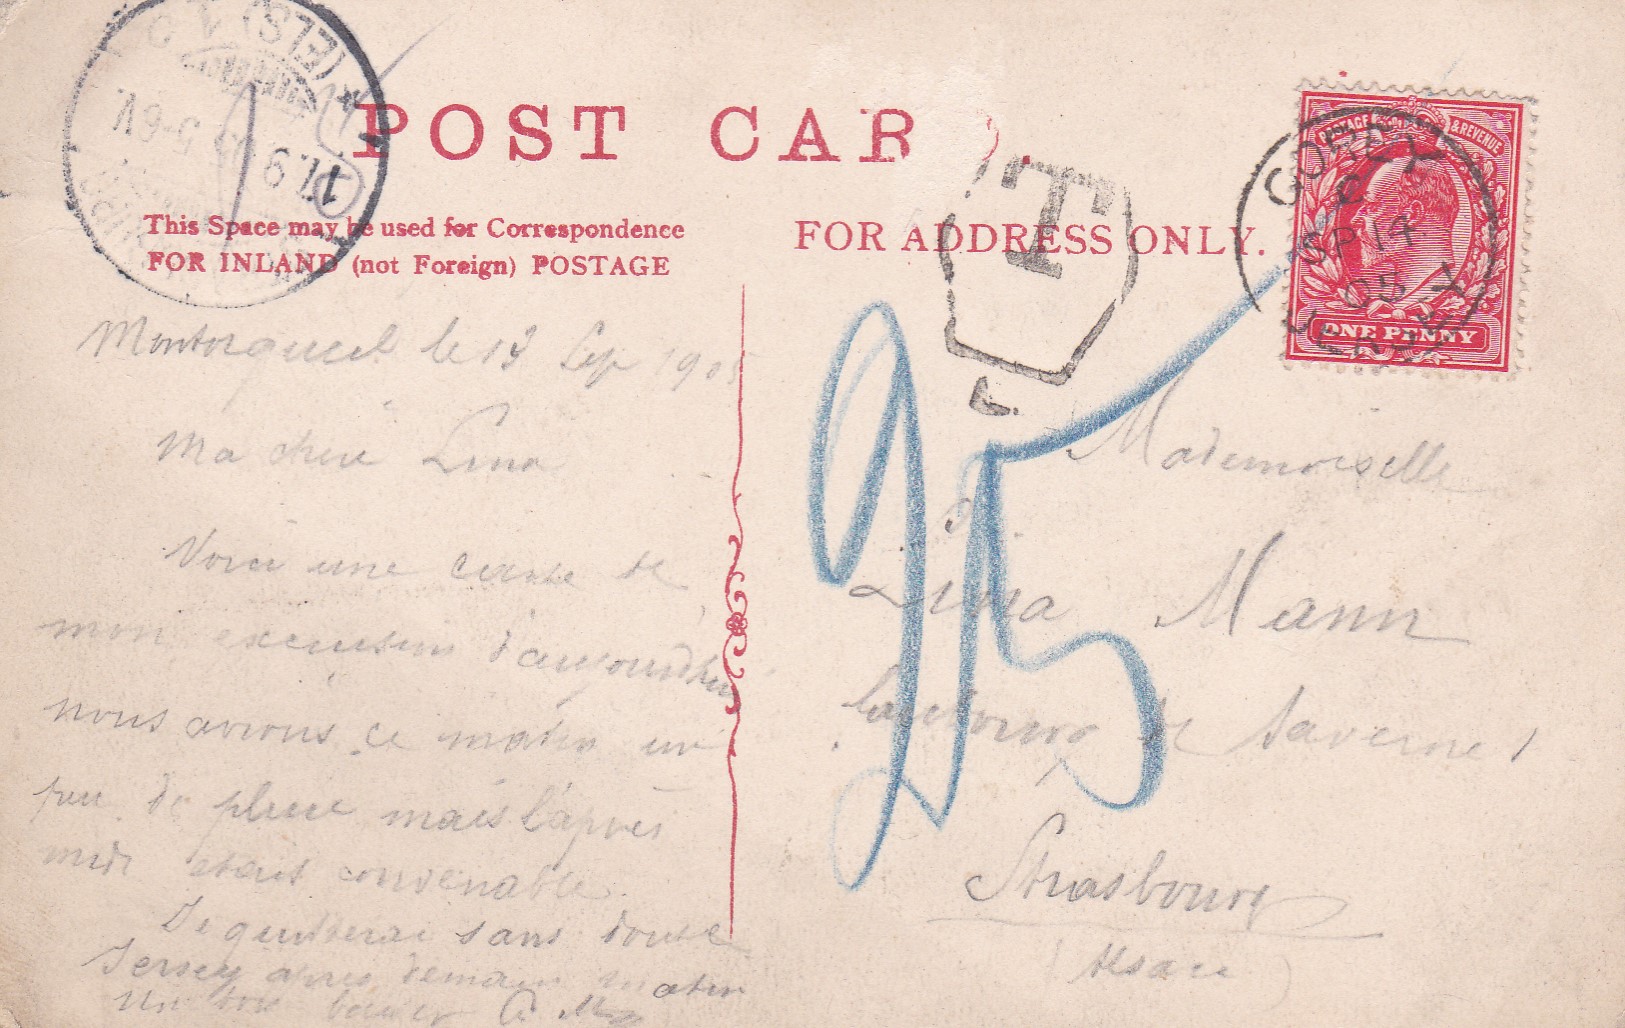 POST CAR
This Space may be used for Correspondence
FOR INLAND (not Foreign) POSTAGE
FOR ADDRESS ONLY.
T
POSTAGE & REVENUE
ONE PENNY
GOREY
SP 14
05
JERSEY
(ELS)
17.9.05. 5-6V
25
Montorgueil le 13 Sep 1905
Ma chere Lina
Voici une carte de
mon excursion d'aujourdhui
nous avions ce matin un
peu de pluie mais l'apres
midi etait convenable.
Je quitterai sans doute
Jersey apres demain matin
Un bon baiser
Mademoiselle
Lina Mann
faubourg de Saverne
Strasbourg
(Alsace)